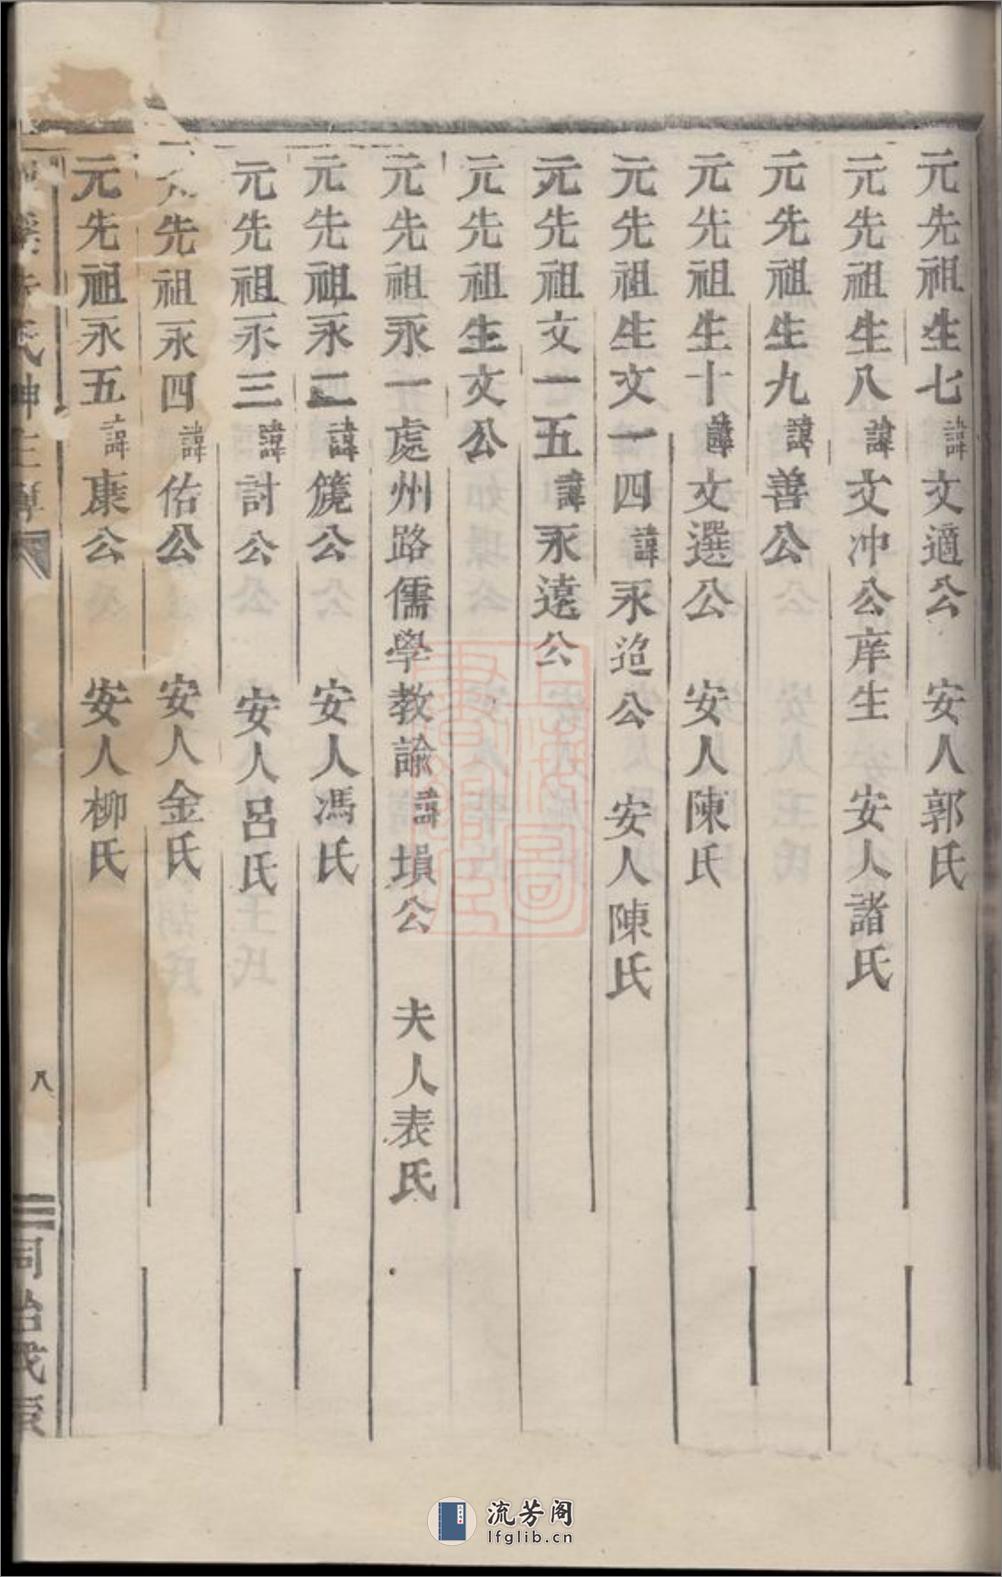 元先祖生七諱文適公　安人郭氏
元先祖生八諱文冲公庠生　安人諸氏
元先祖生九諱善公
元先祖生十諱文選公　安人陳氏
元先祖生文一四諱永迨公　安人陳氏
元先祖文一五諱永遠公
元先祖生文公
元先祖永一處州路儒學教諭諱塤公　夫人表氏
元先祖永二諱篪公　安人馮氏
元先祖永三諱討公　安人呂氏
先祖永四諱佑公　安人金氏
元先祖永五諱康公　安人柳氏
氏神主簿
八
同治戊辰
上海圖書館藏
流芳阁
lfglib.cn